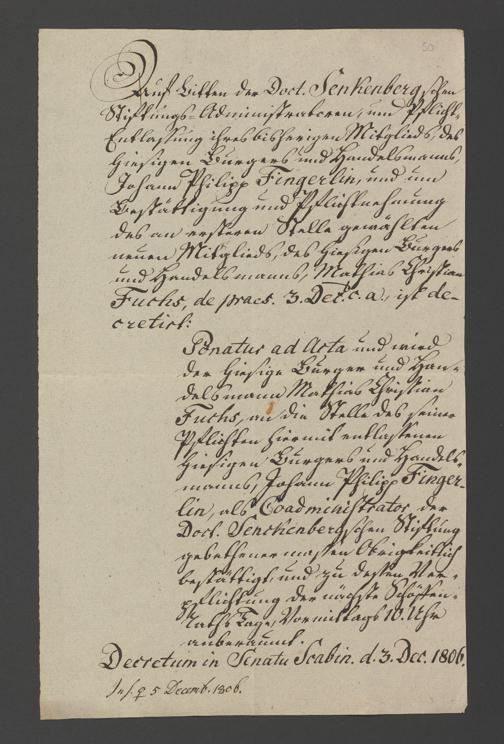 50
Auf Bitten der Doct. Senkenbergschen
Stiftungs-Administratoren, um Pflicht-
Entlassung ihres bisherigen Mitglieds, des
hiesigen Burgers und Handelsmanns,
Johann Philipp Fingerlin, und um
Bestättigung und Pflichtnehmung
des an ersteren Stelle gewählten
neuen Mitglieds, des hiesigen Burgers
und Handelsmanns, Mathias Christian
Fuchs, de praes. 3. Dec. c. a., ist de-
cretirt:
Ponatur ad Acta und wird
der hiesige Burger und Han-
delsmann Mathias Christian
Fuchs, an die Stelle des seiner
Pflichten hiermit entlassenen
hiesigen Burgers und Handels-
manns, Johann Philipp Finger-
lin, als Coadministrator der
Doct. Senckenbergschen Stiftung
gebethener massen Obrigkeitlich
bestättigt, und zu dessen Ver-
pflichtung der nächste Schöffen-
Raths Tage, Vormittags 10. Uhr
anberaumt.
Decretum in Senatu Scabin. d. 3. Dec. 1806.
5 Decemb. 1806.